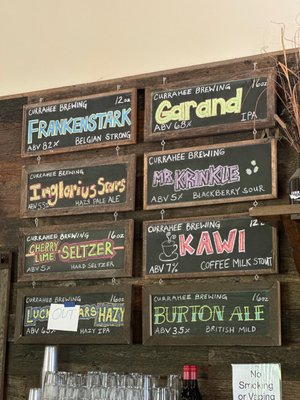 CURRAHEE BREWING 12oz
FRANKENSTARK
ABV 8.2 BELGIAN STRONG
CURRAHEE BREWING 16oz
Garand
ABV 6.8% IPA
CURRAHEE BREWING 16oz
Inglorius Stars
ABV 5.5 HAZY PALE ALE
CURRAHEE BREWING
MR KRINKLE
ABV 5% BLACKBERRY SOUR
CURRAHEE BREWING 16oz
CHERRY LIME SELTZER
ABV 5% HARD SELTZER
CURRAHEE BREWING 12oz
KAWI
ABV 7% COFFEE MILK STOUT
CURRAHEE BREWING 16oz
LUCK OUT ARS HAZY
ABV 6.5% HAZY IPA
CURRAHEE BREWING 16oz
BURTON ALE
ABV 3.5% BRITISH MILD
No Smoking
or Vaping